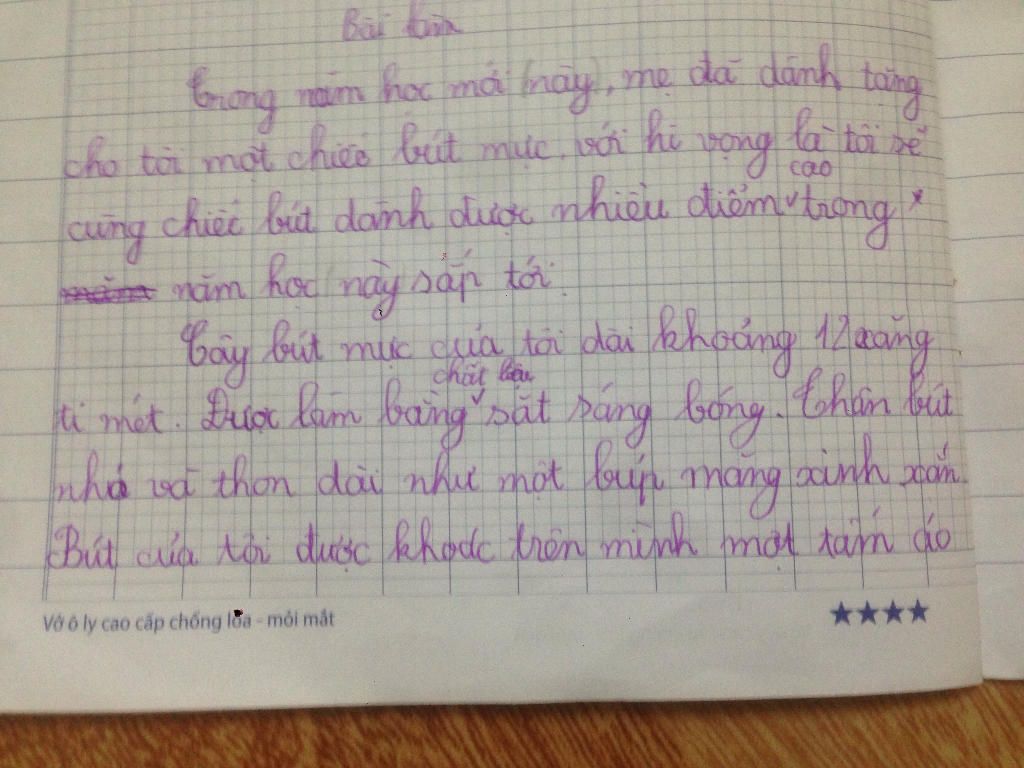 Bài làm
Trong năm học mới này, mẹ đã dành tặng
cho tôi một chiếc bút mực, với hi vọng là tôi sẽ
cao
cùng chiếc bút dành được nhiều điểm trong
năm học này sắp tới.
Cây bút mực của tôi dài khoảng 12 xăng
chất liệu
ti mét. Được làm bằng sắt sáng bóng. Thân bút
nhỏ và thon dài như một búp măng xinh xắn.
Bút của tôi được khoác trên mình một tấm áo
Vở ô ly cao cấp chống lóa - mỏi mắt